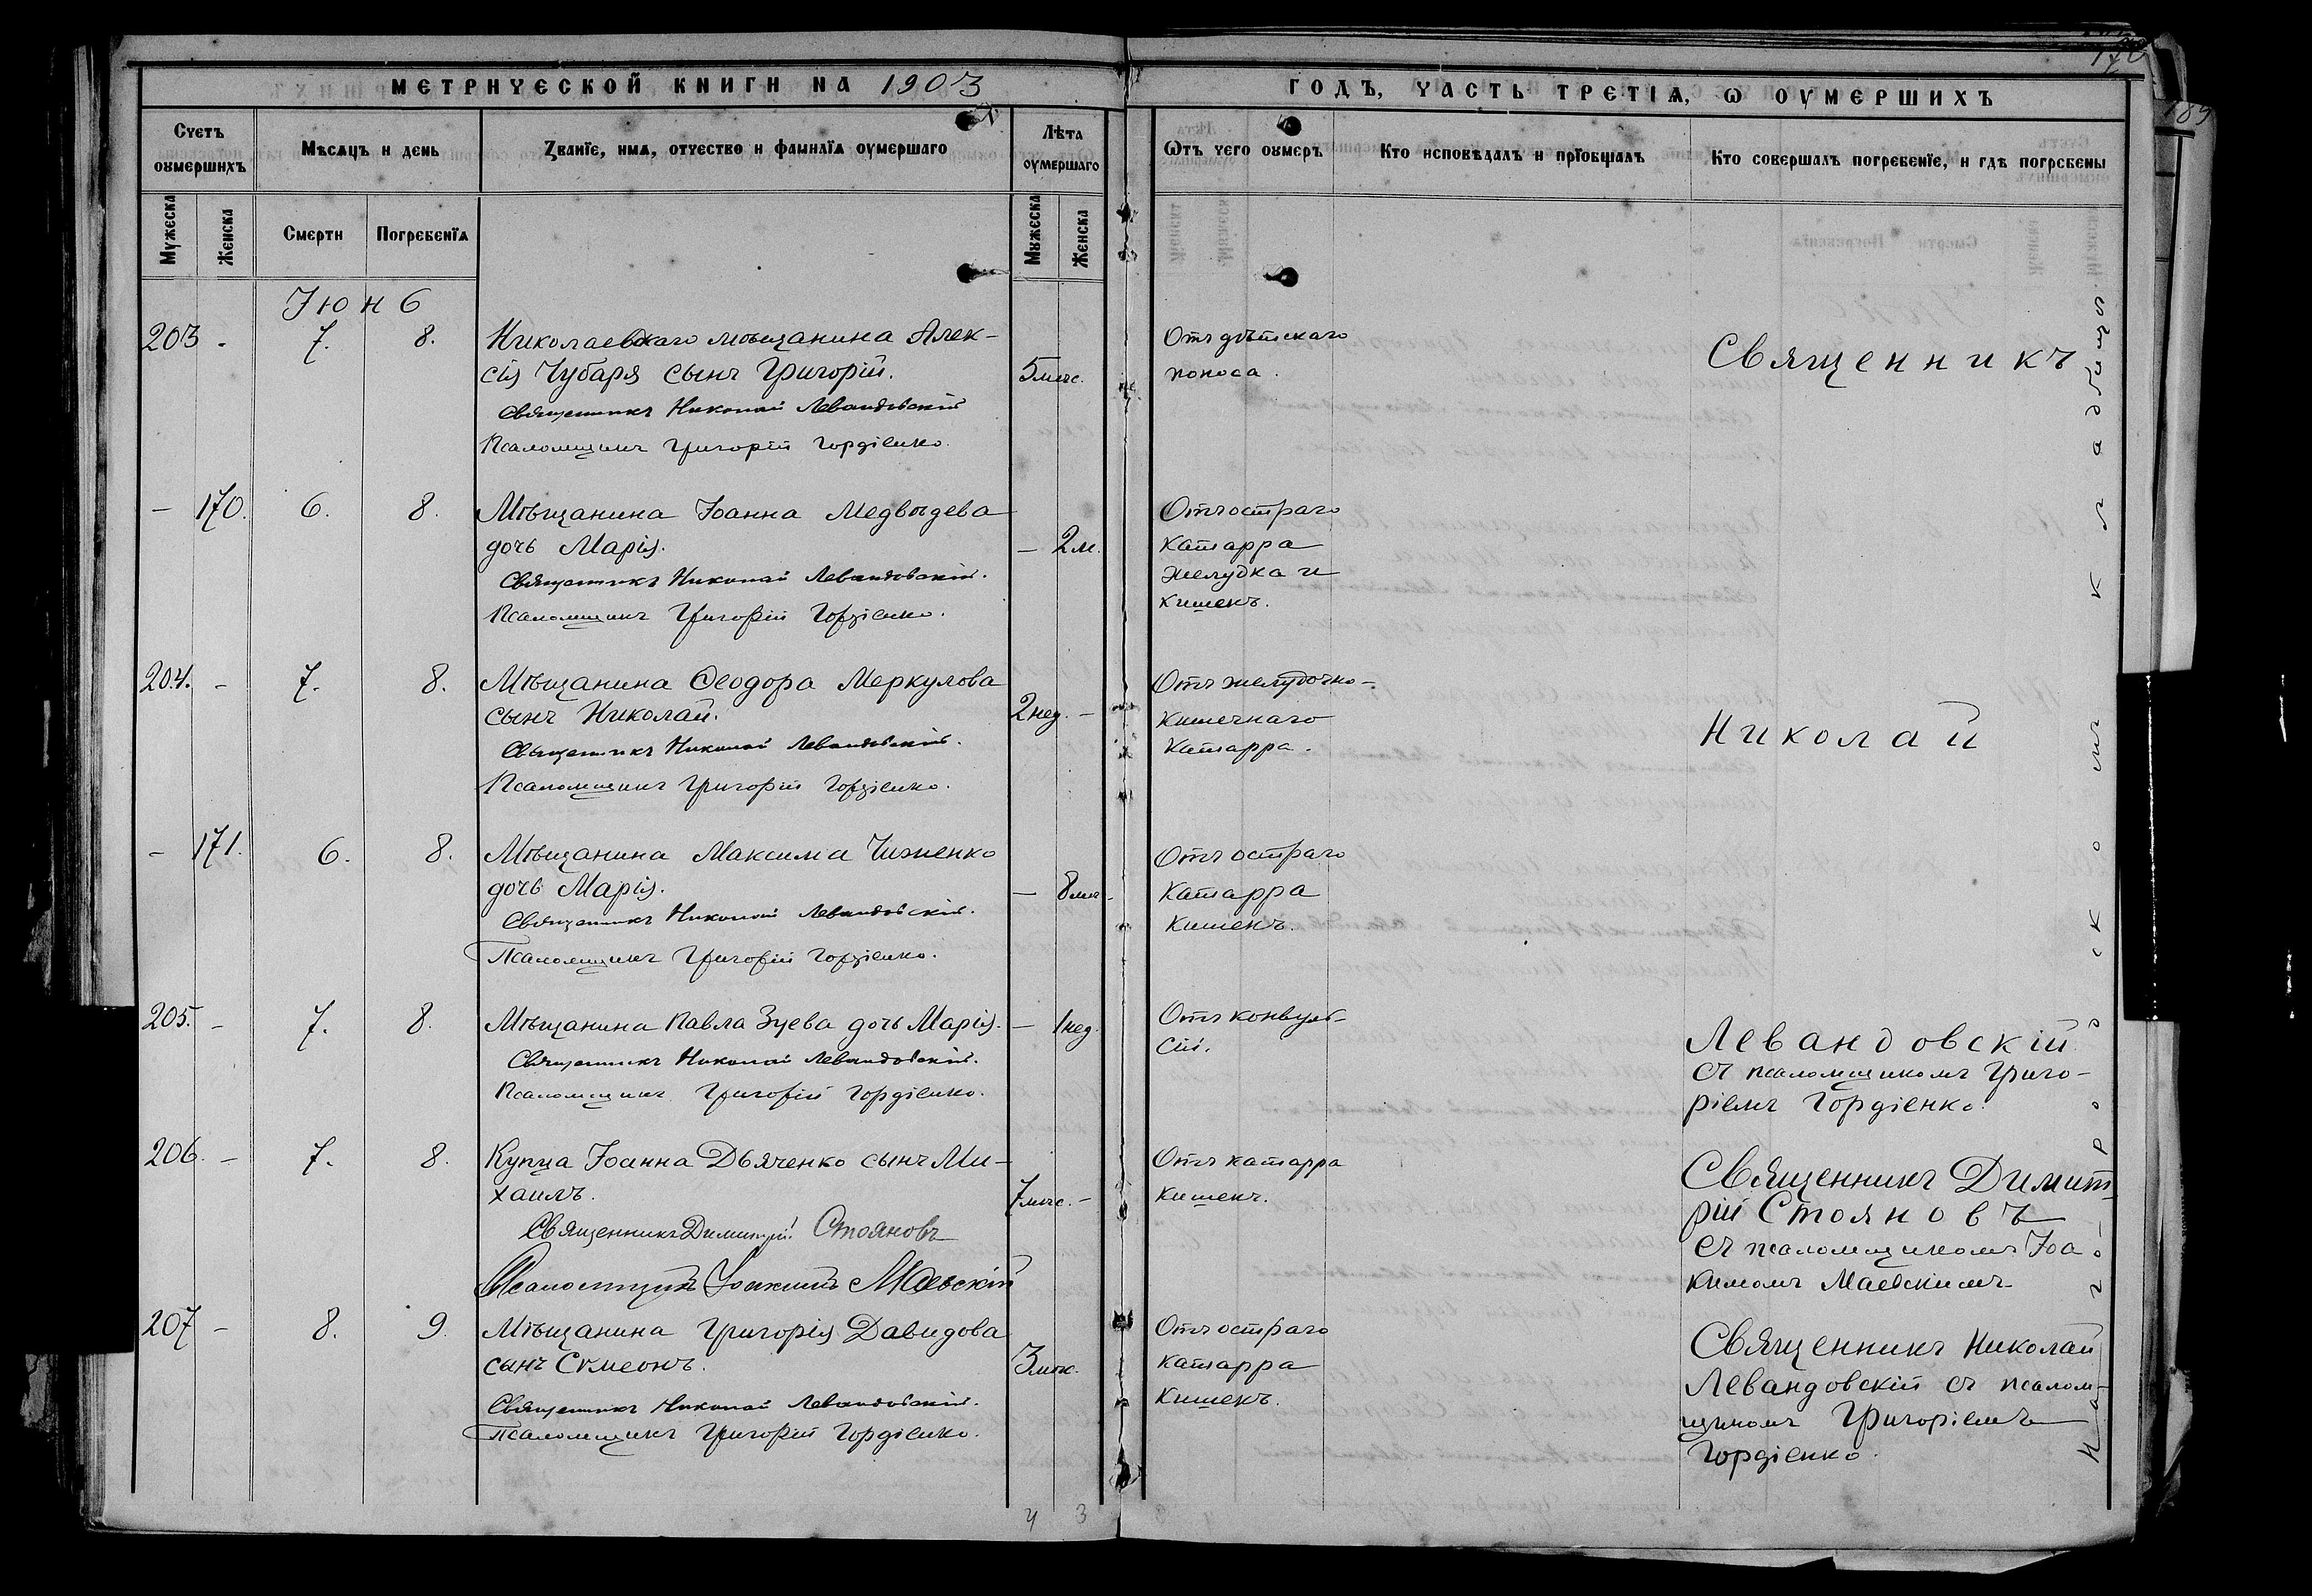 МЕТРИЧЕСКОЙ КНИГИ НА 1903
ГОДЪ, ЧАСТЬ ТРЕТІЯ, Ѡ ОУМЕРШИХЪ
189
Счетъ оумершихъ
Мѣсяцъ и день
Званїе, имя, отчество и фамилїя оумершаго
Лѣта оумершаго
Ѿтъ чего оумеръ
Кто исповѣдалъ и прїобщалъ
Кто совершалъ погребенїе, и гдѣ погребены
Мужеска
Женска
Смерти
Погребенїя
Мужеска
Женска
Іюнь
203 - 7. 8. Николаевскаго мѣщанина Алек-
сія Чубаря сынъ Григорій. 5 мѣс.
Священникъ Николай Левандовскій
Псаломщикъ Григорій Гордіенко.
Отъ дѣтскаго
поноса.
- 170. 6. 8. Мѣщанина Іоанна Медвѣдева
дочь Марія. - 2 м.
Священникъ Николай Левандовскій.
Псаломщикъ Григорій Гордіенко.
Отъ остраго
катарра
желудка и
кишекъ.
204. - 7. 8. Мѣщанина Ѳеодора Меркулова
сынъ Николай. 2 нед. -
Священникъ Николай Левандовскій.
Псаломщикъ Григорій Гордіенко.
Отъ желудочно-
кишечнаго
катарра.
- 171. 6. 8. Мѣщанина Максима Чиженко
дочь Марія. - 8 мѣс.
Священникъ Николай Левандовскій.
Псаломщикъ Григорій Гордіенко.
Отъ остраго
катарра
кишекъ.
205. - 7. 8. Мѣщанина Павла Зуева дочь Марія. - 1 нед.
Священникъ Николай Левандовскій.
Псаломщикъ Григорій Гордіенко.
Отъ конвуль-
сій.
206. - 7. 8. Купца Іоанна Дьяченко сынъ Ми-
хаилъ. 7 мѣс. -
Священникъ Димитрій Стояновъ
Псаломщикъ Іоакимъ Маевскій
Отъ катарра
кишекъ.
207 - 8. 9. Мѣщанина Григорія Давидова
сынъ Сѵмеонъ. 3 мѣс.
Священникъ Николай Левандовскій.
Псаломщикъ Григорій Гордіенко.
Отъ остраго
катарра
кишекъ.
4 3
Священникъ
Николай
Левандовскій
съ псаломщикомъ Григо-
ріемъ Гордіенко.
Священникъ Димит-
рій Стояновъ
съ псаломщикомъ Іоа-
кимомъ Маевскимъ
Священникъ Николай
Левандовскій съ псалом-
щикомъ Григоріемъ
Гордіенко.
На городскомъ кладбищѣ.